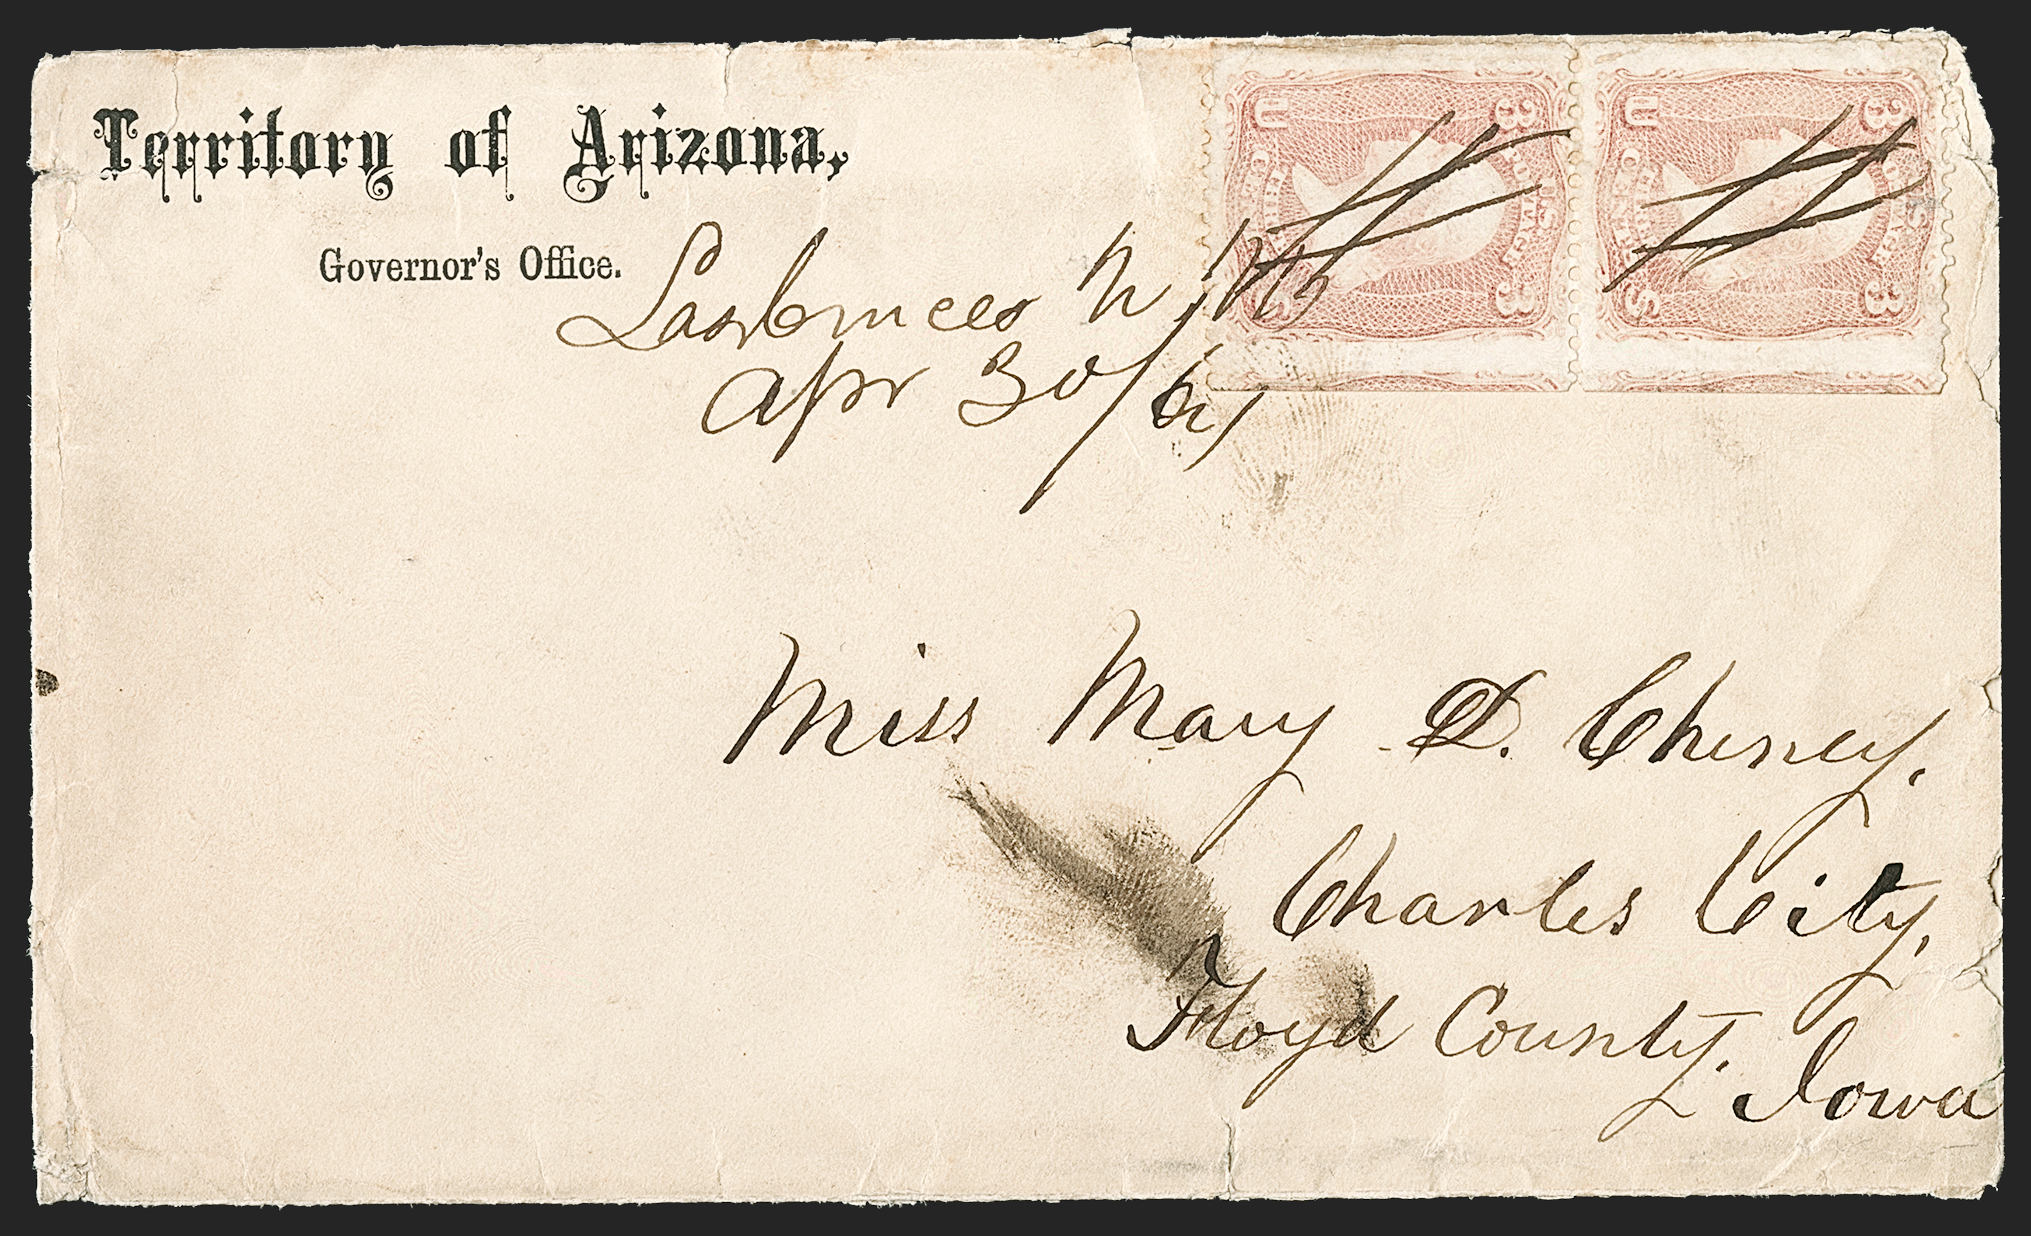 Territory of Arizona,
Governor's Office.
Lascruces N. Mo
Apr 30/64
U 3
U.S. POSTAGE
THREE CENTS
S 3
U 3
U.S. POSTAGE
THREE CENTS
S 3
Miss Mary D. Cheney,
Charles City,
Floyd County,
Iowa